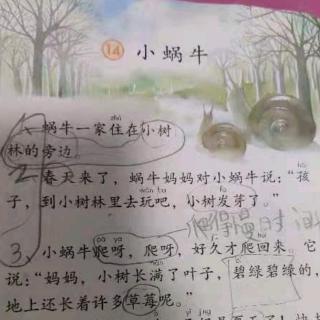 14 小蜗牛
zhù
1、蜗牛一家住在小树
林的旁边。
hái
2 春天来了，蜗牛妈妈对小蜗牛说：“孩
wán fā
子，到小树林里去玩吧，小树发芽了。”
爬得慢时间
pá ya
3、小蜗牛爬呀，爬呀，好久才爬回来。它
说：“妈妈，小树长满了叶子，碧绿碧绿的，
地上还长着许多草莓呢。”